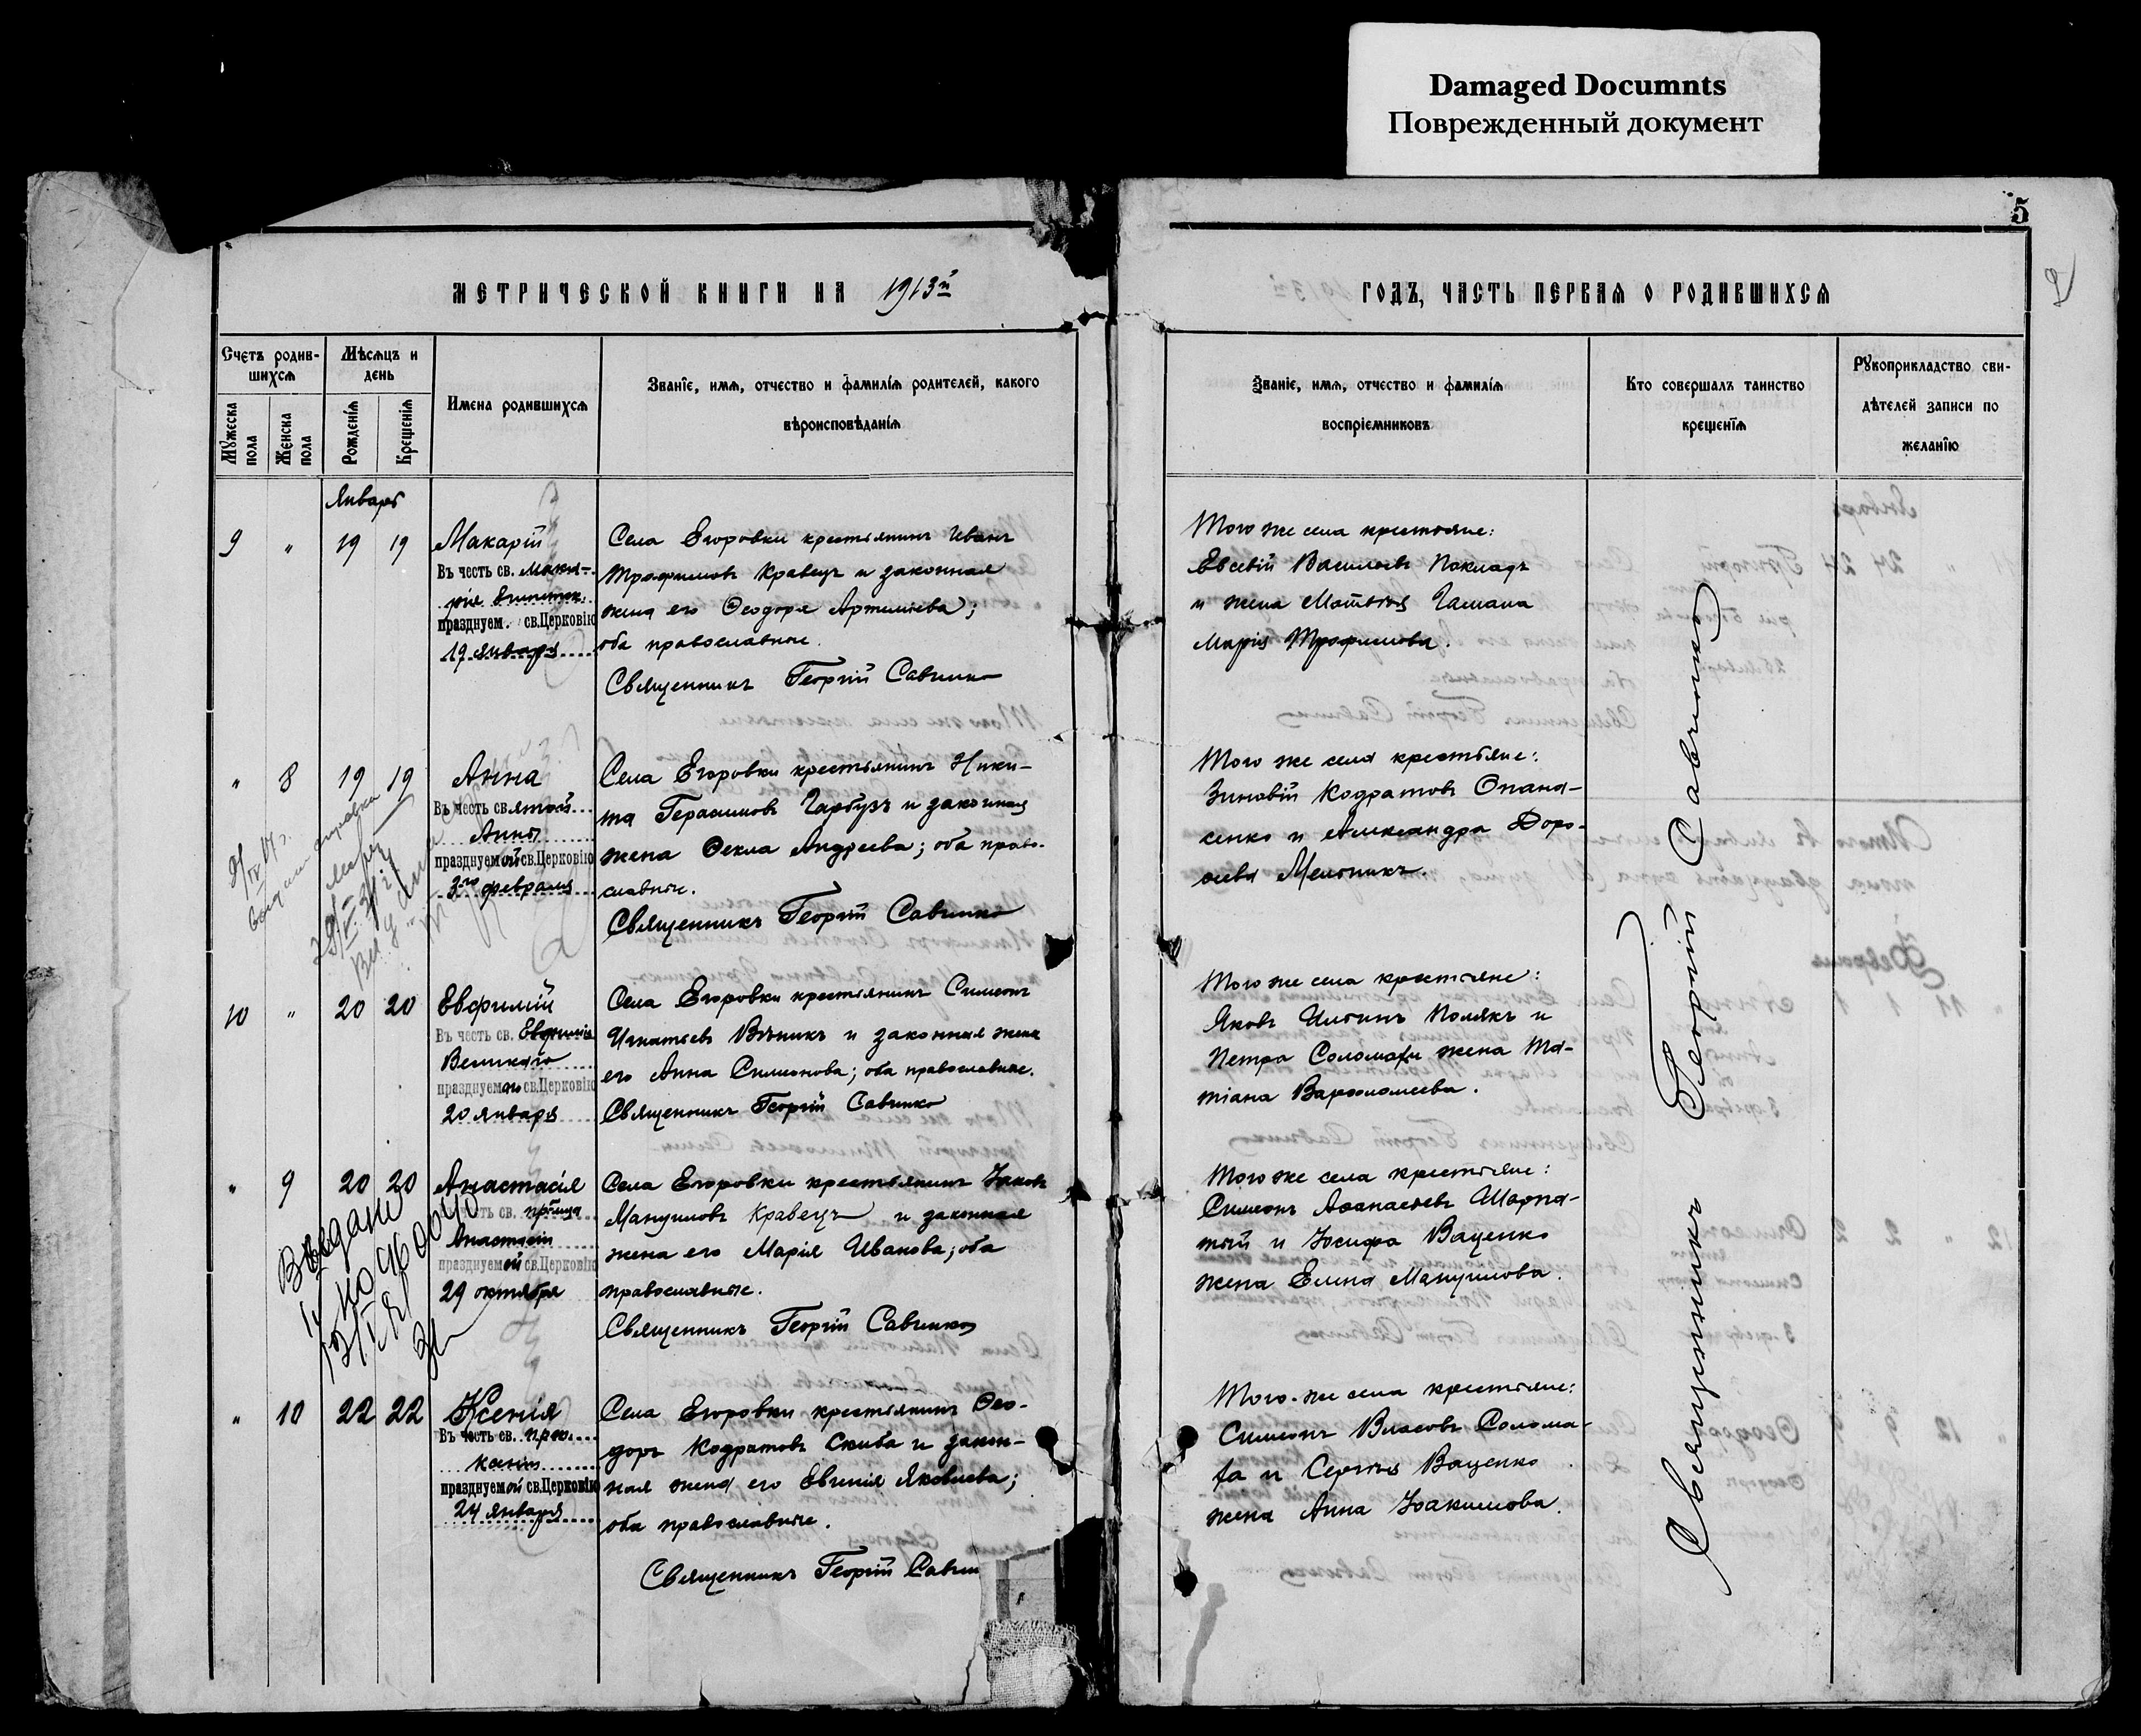 Damaged Documnts
Поврежденный документ
5
МЕТРИЧЕСКОЙ КНИГИ НА 1913й
ГОДЪ, ЧАСТЬ ПЕРВАЯ О РОДИВШИХСЯ
Счетъ родив-
шихся
Мужеска
пола
Женска
пола
Мѣсяцъ и
день
Рожденія
Крещенія
Имена родившихся
Званіе, имя, отчество и фамилія родителей, какого
вѣроисповѣданія
Званіе, имя, отчество и фамилія
воспріемниковъ
Кто совершалъ таинство
крещенія
Рукоприкладство сви-
дѣтелей записи по
желанію
Январь
9 " 19 19
Макарій
Въ честь св. Мака-
рія Египетск.
празднуем. св.Церковію
19 января
Села Егоровки крестьянинъ Иванъ
Трофимовъ Кравецъ и законная
жена его Ѳеодора Артемьева;
оба православные.
Священникъ Георгій Савченко
Того же села крестьяне:
Евсевій Васильевъ Покладъ
и жена Матвѣя Гамана
Марія Трофимова.
" 8 19 19
Анна
Въ честь святой
Анны
празднуемой св.Церковію
3го февраля
Села Егоровки крестьянинъ Ники-
та Герасимовъ Гарбузъ и законная
жена Ѳекла Андреева; оба право-
славные.
Священникъ Георгій Савченко
Того же села крестьяне:
Зиновій Кодратовъ Опана-
сенко и Александра Доро-
ѳева Мельникъ.
10 " 20 20
Евфимій
Въ честь св. Евфимія
Великаго
празднуемаго св.Церковію
20 января
Села Егоровки крестьянинъ Симеонъ
Игнатьевъ Вѣникъ и законная жена
его Анна Симеонова; оба православные.
Священникъ Георгій Савченко
Того же села крестьяне:
Яковъ Ильинъ Полякъ и
Петра Соломахи жена Та-
тіана Варѳоломеева.
" 9 20 20
Анастасія
Въ честь св. пр-ца
Анастасіи
празднуемой св.Церковію
29 октября
Села Егоровки крестьянинъ Іаковъ
Мануиловъ Кравецъ и законная
жена его Марія Иванова; оба
православные.
Священникъ Георгій Савченко
Того же села крестьяне:
Симеонъ Аѳанасьевъ
и Іосифа Ваценко
жена Елена Мануилова.
Выдано
" 10 22 22
Ксенія
Въ честь св. прп.
Ксеніи
празднуемой св.Церковію
24 января
Села Егоровки крестьянинъ Ѳео-
доръ Кодратовъ Скиба и закон-
ная жена его Евгенія Яковлева;
оба православные.
Священникъ Георгій Савчен
Того-же села крестьяне:
Симеонъ Власовъ Солома-
ха и Сергѣя Ваценко
жена Анна Іоакимова.
Священникъ Георгій Савченко